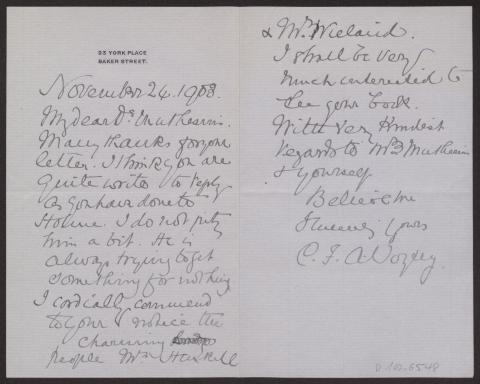 23 YORK PLACE
BAKER STREET.
November 24. 1908.
My dear Dr Muthesius.
Many thanks for your
letter. I think you are
quite write to reply
as you have done to
Holme. I do not pity
him a bit. He is
always trying to get
something for nothing
I cordially commend
to your notice the
charming
people Mr Haskell
& Mr Wieland.
I shall be very
much interested to
see your book.
With very kindest
regards to Mrs Muthesius
& yourself.
Believe me
Sincerely yours
C. F. A. Voysey.
D 102-6548